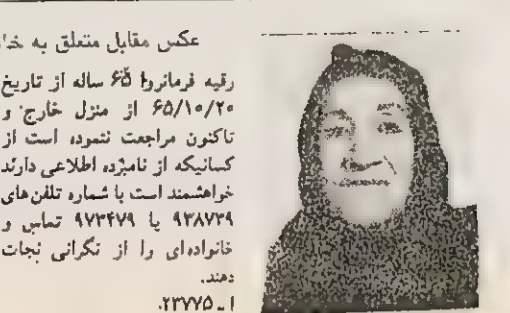 عکس مقابل متعلق به
رقیه فرمانروا ۶۵ ساله از تاریخ
۶۵/۱۰/۲۰ از منزل خارج و
تاکنون مراجعت ننموده است از
کسانیکه از نامبرده اطلاعی دارند
خواهشمند است با شماره تلفن‌های
۹۳۸۷۳۹ یا ۹۷۳۴۷۹ تماس و
خانواده‌ای را از نگرانی نجات
دهند.
۱ـ۲۳۷۷۵